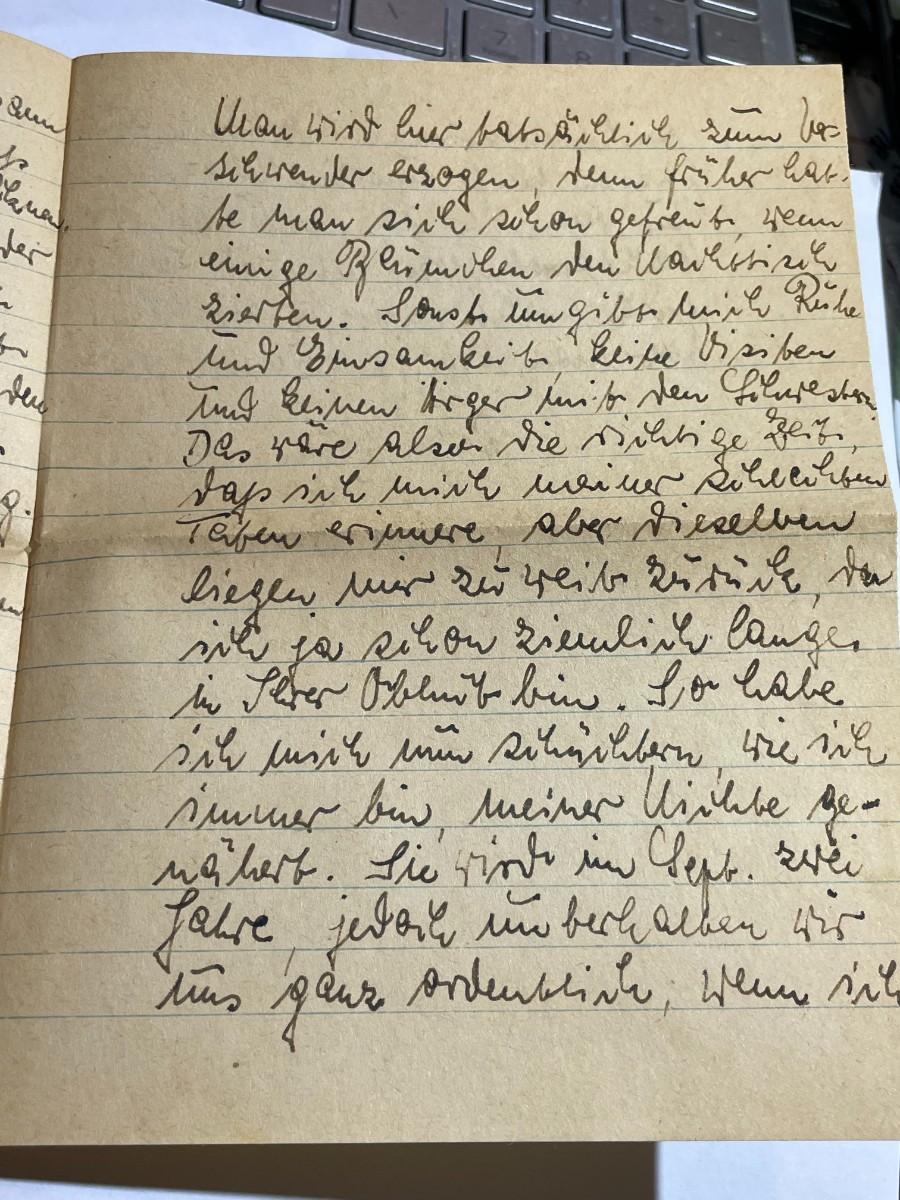 Man wird hier tatsächlich zum Ver-
schwender erzogen, denn früher hat-
te man sich schon gefreut, wenn
einige Blümchen den Nachttisch
zierten. Sonst umgibt mich Ruhe
und Einsamkeit, keine Visiten
und keinen Ärger mit den Schwestern.
Das wäre also die richtige Zeit,
daß ich mich meiner schlechten
Taten erinnere, aber dieselben
liegen mir zu weit zurück, da
ich ja schon ziemlich lange
in Ihrer Obhut bin. So habe
ich mich nun schüchtern, wie ich
immer bin, meiner Nichte ge-
nähert. Sie wird im Sept. zwei
Jahre, jedoch unterhalten wir
uns ganz ordentlich, wenn ich